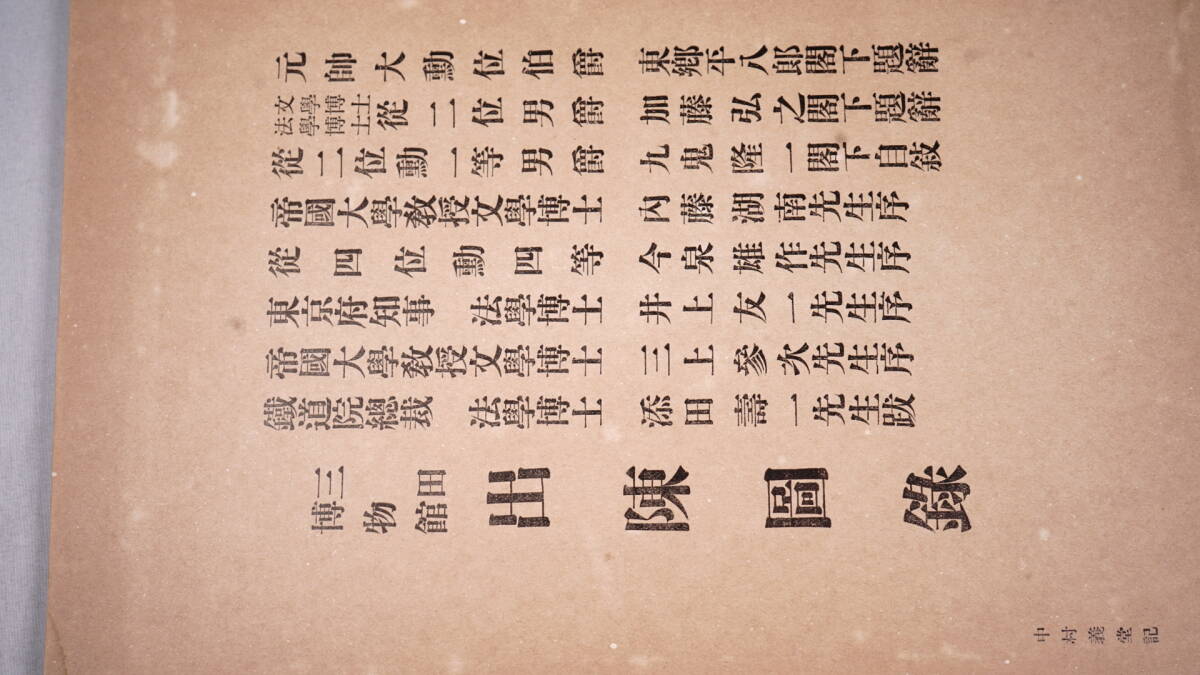 元帥大勳位伯爵 東鄉平八郎閣下題辭
文學博士法學博士從二位男爵 加藤弘之閣下題辭
從二位勳一等男爵 九鬼隆一閣下自敍
帝國大學教授文學博士 內藤湖南先生序
從四位勳四等 今泉雄作先生序
東京府知事 法學博士 井上友一先生序
帝國大學教授文學博士 三上參次先生序
鐵道院總裁 法學博士 添田壽一先生跋
三田博物館 出陳圖錄
中村義堂記